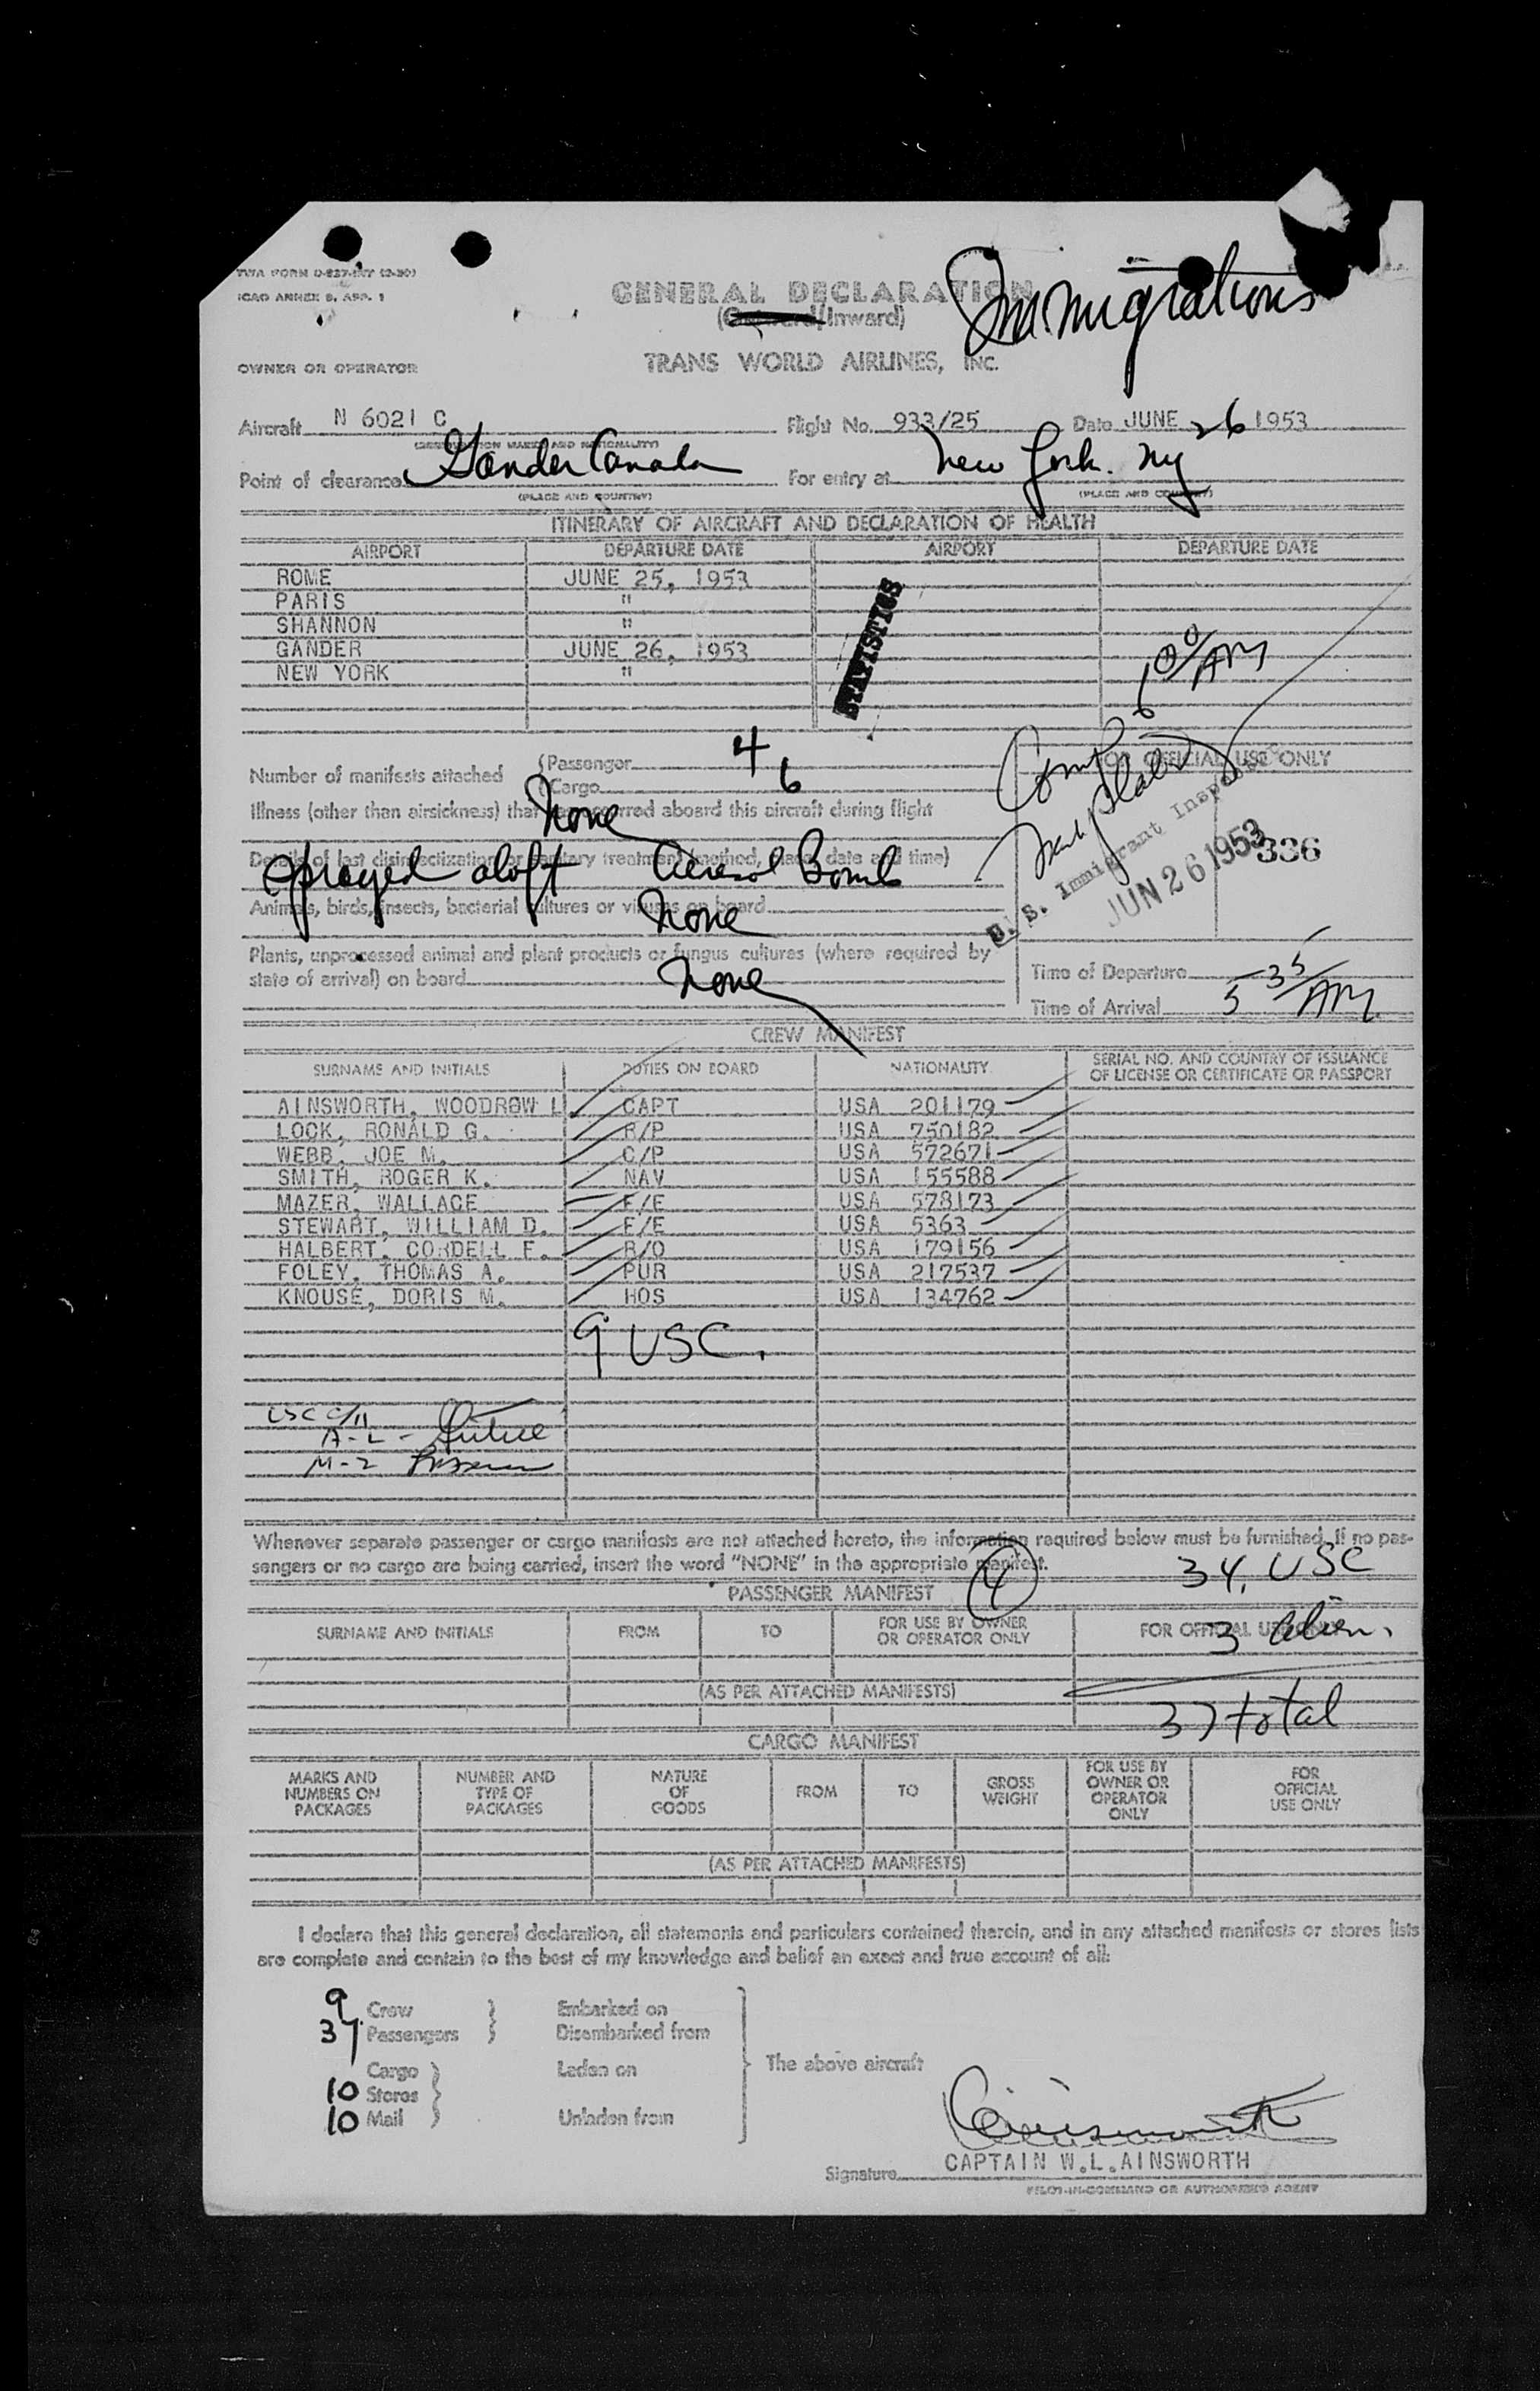 TWA FORM D-827-INT (2-50)
ICAO ANNEX 9, APP. 1
Immigrations
GENERAL DECLARATION
(Outward/Inward)
OWNER OR OPERATOR TRANS WORLD AIRLINES, INC.
Aircraft N 6021 C Flight No. 933/25 Date JUNE 26 1953
(REGISTRATION MARKS AND NATIONALITY)
Point of clearance Gander Canada For entry at New York. NY
(PLACE AND COUNTRY) (PLACE AND COUNTRY)
ITINERARY OF AIRCRAFT AND DECLARATION OF HEALTH
AIRPORT DEPARTURE DATE AIRPORT DEPARTURE DATE
ROME JUNE 25, 1953
PARIS "
SHANNON "
GANDER JUNE 26, 1953
NEW YORK "
STATISTICS
6 00/AM
Number of manifests attached (Passenger 4
(Cargo 6
FOR OFFICIAL USE ONLY
Illness (other than airsickness) that has occurred aboard this aircraft during flight
None
Details of last disinsectization or sanitary treatment (method, place, date and time)
Sprayed aloft Aerosol Bomb
U. S. Immigrant Inspector
JUN 26 1953
336
Animals, birds, insects, bacterial cultures or viruses on board
None
Plants, unprocessed animal and plant products or fungus cultures (where required by
state of arrival) on board None
Time of Departure
Time of Arrival 5 35/AM
CREW MANIFEST
SURNAME AND INITIALS DUTIES ON BOARD NATIONALITY SERIAL NO. AND COUNTRY OF ISSUANCE
OF LICENSE OR CERTIFICATE OR PASSPORT
AINSWORTH, WOODROW L CAPT USA 201179
LOCK, RONALD G. R/P USA 750182
WEBB, JOE M. C/P USA 572671
SMITH, ROGER K. NAV USA 155588
MAZER, WALLACE F/E USA 578173
STEWART, WILLIAM D. F/E USA 5363
HALBERT, CORDELL F. R/O USA 179156
FOLEY, THOMAS A. PUR USA 217537
KNOUSE, DORIS M. HOS USA 134762
9 USC.
A-L -
M-Z
Whenever separate passenger or cargo manifests are not attached hereto, the information required below must be furnished. If no pas-
sengers or no cargo are being carried, insert the word "NONE" in the appropriate manifest.
34, USC
PASSENGER MANIFEST 4
SURNAME AND INITIALS FROM TO FOR USE BY OWNER
OR OPERATOR ONLY FOR OFFICIAL USE ONLY
3 alien.
(AS PER ATTACHED MANIFESTS)
37 total
CARGO MANIFEST
MARKS AND
NUMBERS ON
PACKAGES
NUMBER AND
TYPE OF
PACKAGES
NATURE
OF
GOODS
FROM
TO
GROSS
WEIGHT
FOR USE BY
OWNER OR
OPERATOR
ONLY
FOR
OFFICIAL
USE ONLY
(AS PER ATTACHED MANIFESTS)
I declare that this general declaration, all statements and particulars contained therein, and in any attached manifests or stores lists
are complete and contain to the best of my knowledge and belief an exact and true account of all:
9 Crew Embarked on
37 Passengers Disembarked from
The above aircraft
Cargo Laden on
10 Stores
10 Mail Unladen from
Ainsworth
Signature CAPTAIN W.L.AINSWORTH
PILOT-IN-COMMAND OR AUTHORIZED AGENT